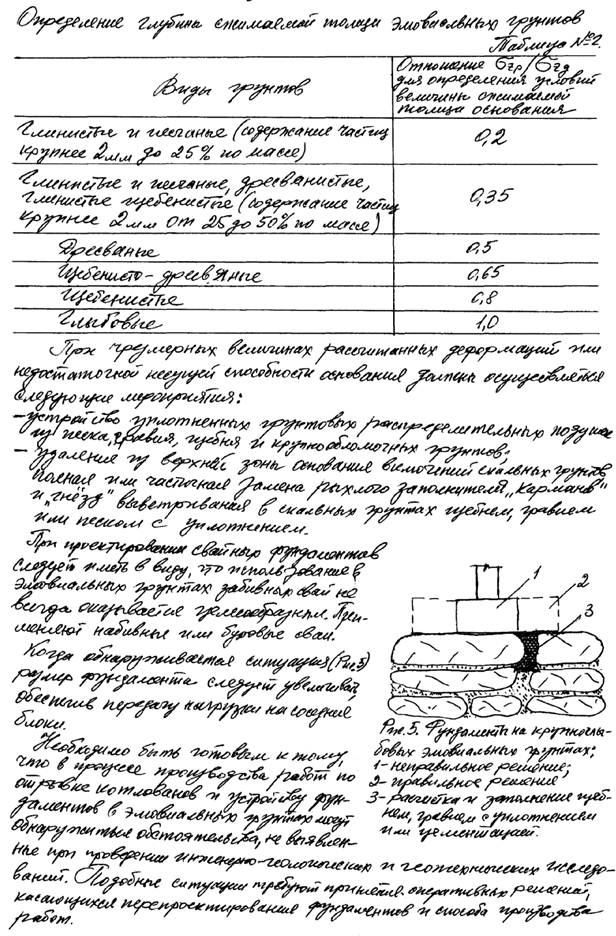 Определение глубины сжимаемой толщи элювиальных грунтов
Таблица №2.
Виды грунтов
Отношение σzp/σzg
для определения условий
величины сжимаемой
толщи основания
Глинистые и песчаные (содержание частиц
крупнее 2мм до 25% по массе)
0,2
Глинистые и песчаные, дресванистые,
глинистые щебенистые (содержание частиц
крупнее 2мм от 25 до 50% по массе)
0,35
Дресваные
0,5
Щебенисто-дресвяные
0,65
Щебенистые
0,8
Глыбовые
1,0
При чрезмерных величинах рассчитанных деформаций или
недостаточной несущей способности основания должны осуществляется
следующие мероприятия:
- устройство уплотненных грунтовых распределительных подушек
из песка, гравия, щебня и крупнообломочных грунтов;
- удаление из верхней зоны основания включений скальных грунтов,
полная или частичная замена рыхлого заполнителя "карманов"
и "гнёзд" выветривания в скальных грунтах щебнем, гравием
или песком с уплотнением.
При проектировании свайных фундаментов
следует иметь в виду, что использование в
элювиальных грунтах забивных свай не
всегда оказывается целесообразным. При-
меняют набивные или буровые сваи.
Когда обнаруживается ситуация (Рис.5)
размер фундамента следует увеличивать,
обеспечив передачу нагрузки на соседние
блоки.
1
2
3
Рис.5. Фундаменты на крупноглы-
бовых элювиальных грунтах;
1- неправильное решение;
2- правильное решение
3- расчистка и заполнение щеб-
нем, гравием с уплотнением
или цементацией.
Необходимо быть готовым к тому,
что в процессе производства работ по
отрывке котлованов и устройству фун-
даментов в элювиальных грунтах могут
обнаружиться обстоятельства, не выявлен-
ные при проведении инженерно-геологических и геотехнических исследо-
ваний. Подобные ситуации требуют принятия оперативных решений,
касающихся перепроектирования фундаментов и способа производства
работ.